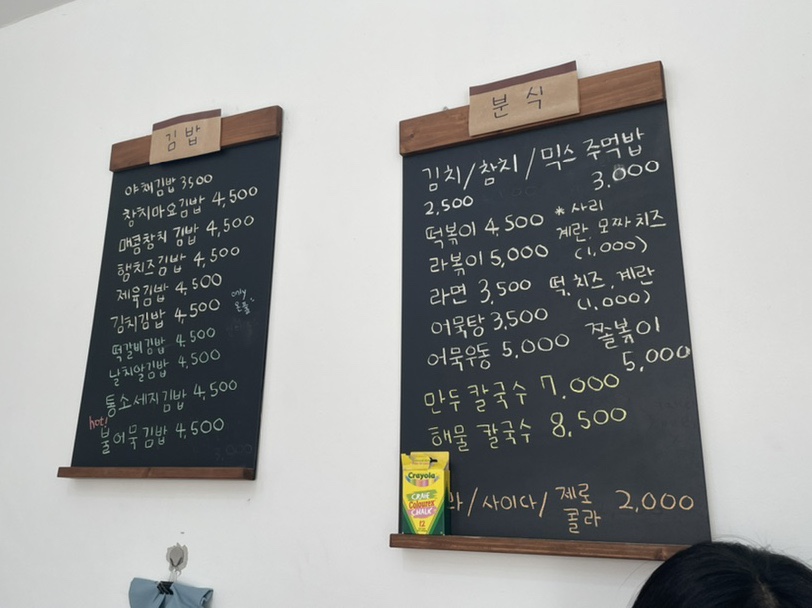 김밥
야채김밥 3500
참치마요김밥 4,500
매콤참치 김밥 4,500
햄치즈김밥 4,500
제육김밥 4,500
김치김밥 4,500
only
떡갈비김밥 4,500
날치알김밥 4,500
통소세지김밥 4,500
hot!
불어묵김밥 4,500
3,000
분식
김치/참치/믹스 주먹밥
2,500 3,000
떡볶이 4,500 * 사리
계란, 모짜치즈
(1,000)
라볶이 5,000
라면 3,500 떡, 치즈, 계란
(1,000)
어묵탕 3,500
어묵우동 5,000 쫄볶이
5,000
만두 칼국수 7,000
해물 칼국수 8,500
/사이다/제로
콜라 2,000
Crayola
COLOURED
CHALK
12